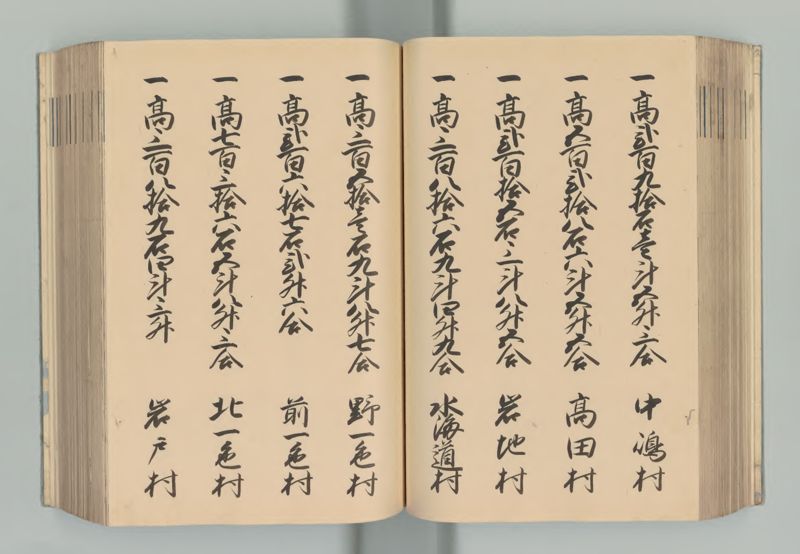 一高弐百九拾石壱斗五升三合 中嶋村
一高五百弐拾八石六斗五升五合 高田村
一高弐百拾五石三斗八升五合 岩地村
一高三百八拾六石九斗四升九合 水海道村
一高三百五拾壱石九斗八升七合 野一色村
一高弐百六拾七石弐升六合 前一色村
一高七百三拾六石五斗八升三合 北一色村
一高三百八拾九石四斗三升 岩戸村